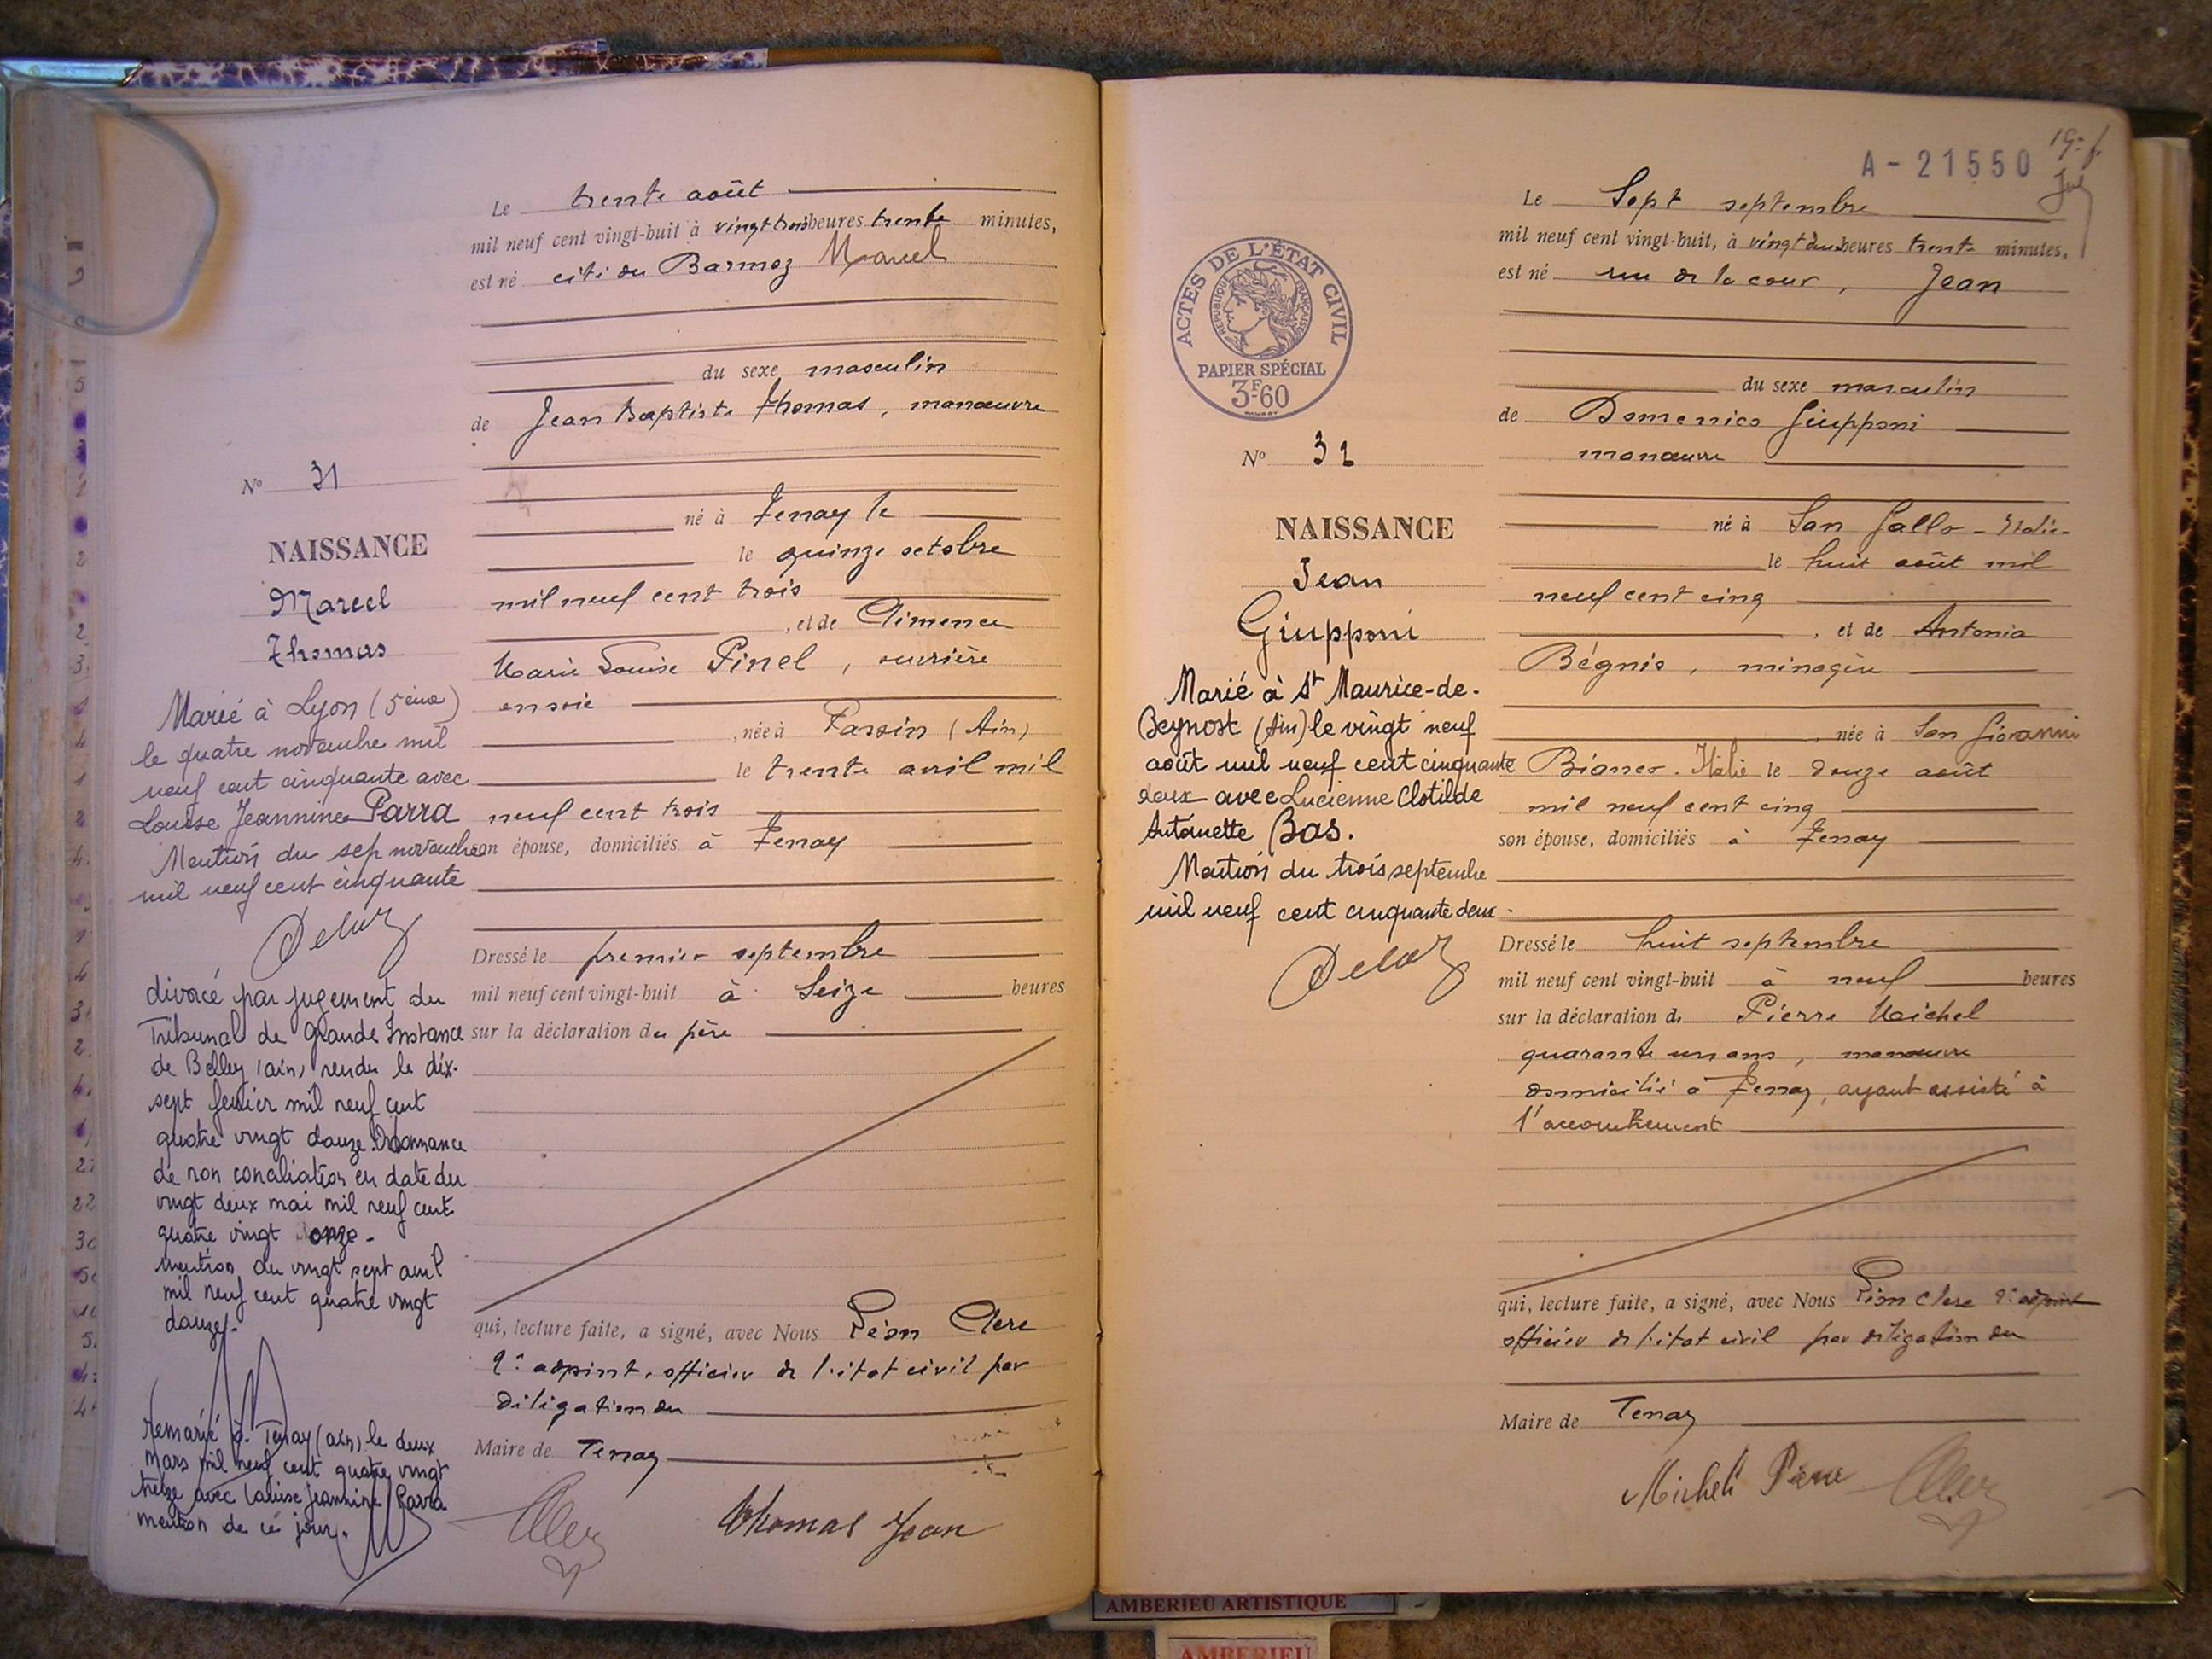 Le trente août
mil neuf cent vingt-huit à vingt trois heures trente minutes,
est né cité du Barmoz Marcel
du sexe masculin
de Jean Baptiste Thomas, manœuvre
né à Tenay le
le quinze octobre
mil neuf cent trois
, et de Climence
Marie Louise Pinel, ouvrière
en soie
, née à Passin (Ain)
le trente avril mil
neuf cent trois
son épouse, domiciliés à Tenay
Dressé le premier septembre
mil neuf cent vingt-huit à Seize heures
sur la déclaration du père
qui, lecture faite, a signé, avec Nous Léon Clerc
2e adjoint, officier de l'état civil par
déligation du
Maire de Tenay
Thomas Jean
No 31
NAISSANCE
Marcel
Thomas
Marié à Lyon (5ème)
le quatre novembre mil
neuf cent cinquante avec
Louise Jeannine Parra
Mention du sep novembre
mil neuf cent cinquante
divorcé par jugement du
Tribunal de Grande Instance
de Belley (ain) rendu le dix-
sept février mil neuf cent
quatre vingt douze. Ordonnance
de non conciliation en date du
vingt deux mai mil neuf cent
quatre vingt onze-
mention du vingt sept avril
mil neuf cent quatre vingt
douze.
Remarié à Tenay (ain) le deux
mars mil neuf cent quatre vingt
treize avec Louise Jeannine Parra
mention de ce jour.
A-21550
19e f.
ACTES DE L'ÉTAT CIVIL
RÉPUBLIQUE FRANÇAISE
PAPIER SPÉCIAL
3F60
No 32
NAISSANCE
Jean
Giupponi
Marié à St Maurice-de-
Beynost (Ain) le vingt neuf
août mil neuf cent cinquante
deux avec Lucienne Clotilde
Antoinette Bas.
Mention du trois septembre
mil neuf cent cinquante deux.
Le Sept septembre
mil neuf cent vingt-huit, à vingt deux heures trente minutes,
est né rue de la cour, Jean
du sexe masculin
de Domenico Giupponi
manœuvre
né à San Gallo - Italie-
le huit août mil
neuf cent cinq
, et de Antonia
Bégnis, ménagère
, née à San Giovanni
Bianco - Italie le douze août
mil neuf cent cinq
son épouse, domiciliés à Tenay
Dressé le huit septembre
mil neuf cent vingt-huit à neuf heures
sur la déclaration de Pierre Michel
quarante un ans, manœuvre
domicilié à Tenay, ayant assisté à
l'accouchement
qui, lecture faite, a signé, avec Nous Léon Clerc 2e adjoint
officier de l'état civil par déligation du
Maire de Tenay
Micheli Pierre
AMBERIEU ARTISTIQUE
AMBERIEU